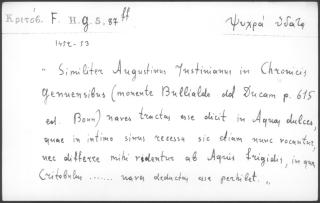 Κριτόβ. F. H. g. 5, 87 ff
Ψυχρά ὕδατα
1452-53
" Similiter Augustinus Justinianus in Chronicis
Genuensibus (monente Bullialdo ad Ducam p. 615
ed. Bonn) naves tractas esse dicit in Aquas dulces,
quae in intimo sinus recessu sic etiam nunc vocantur,
nec differre mihi videntur ab Aquis frigidis, in quas
Critobulus ....... naves deductas esse perhibet. "